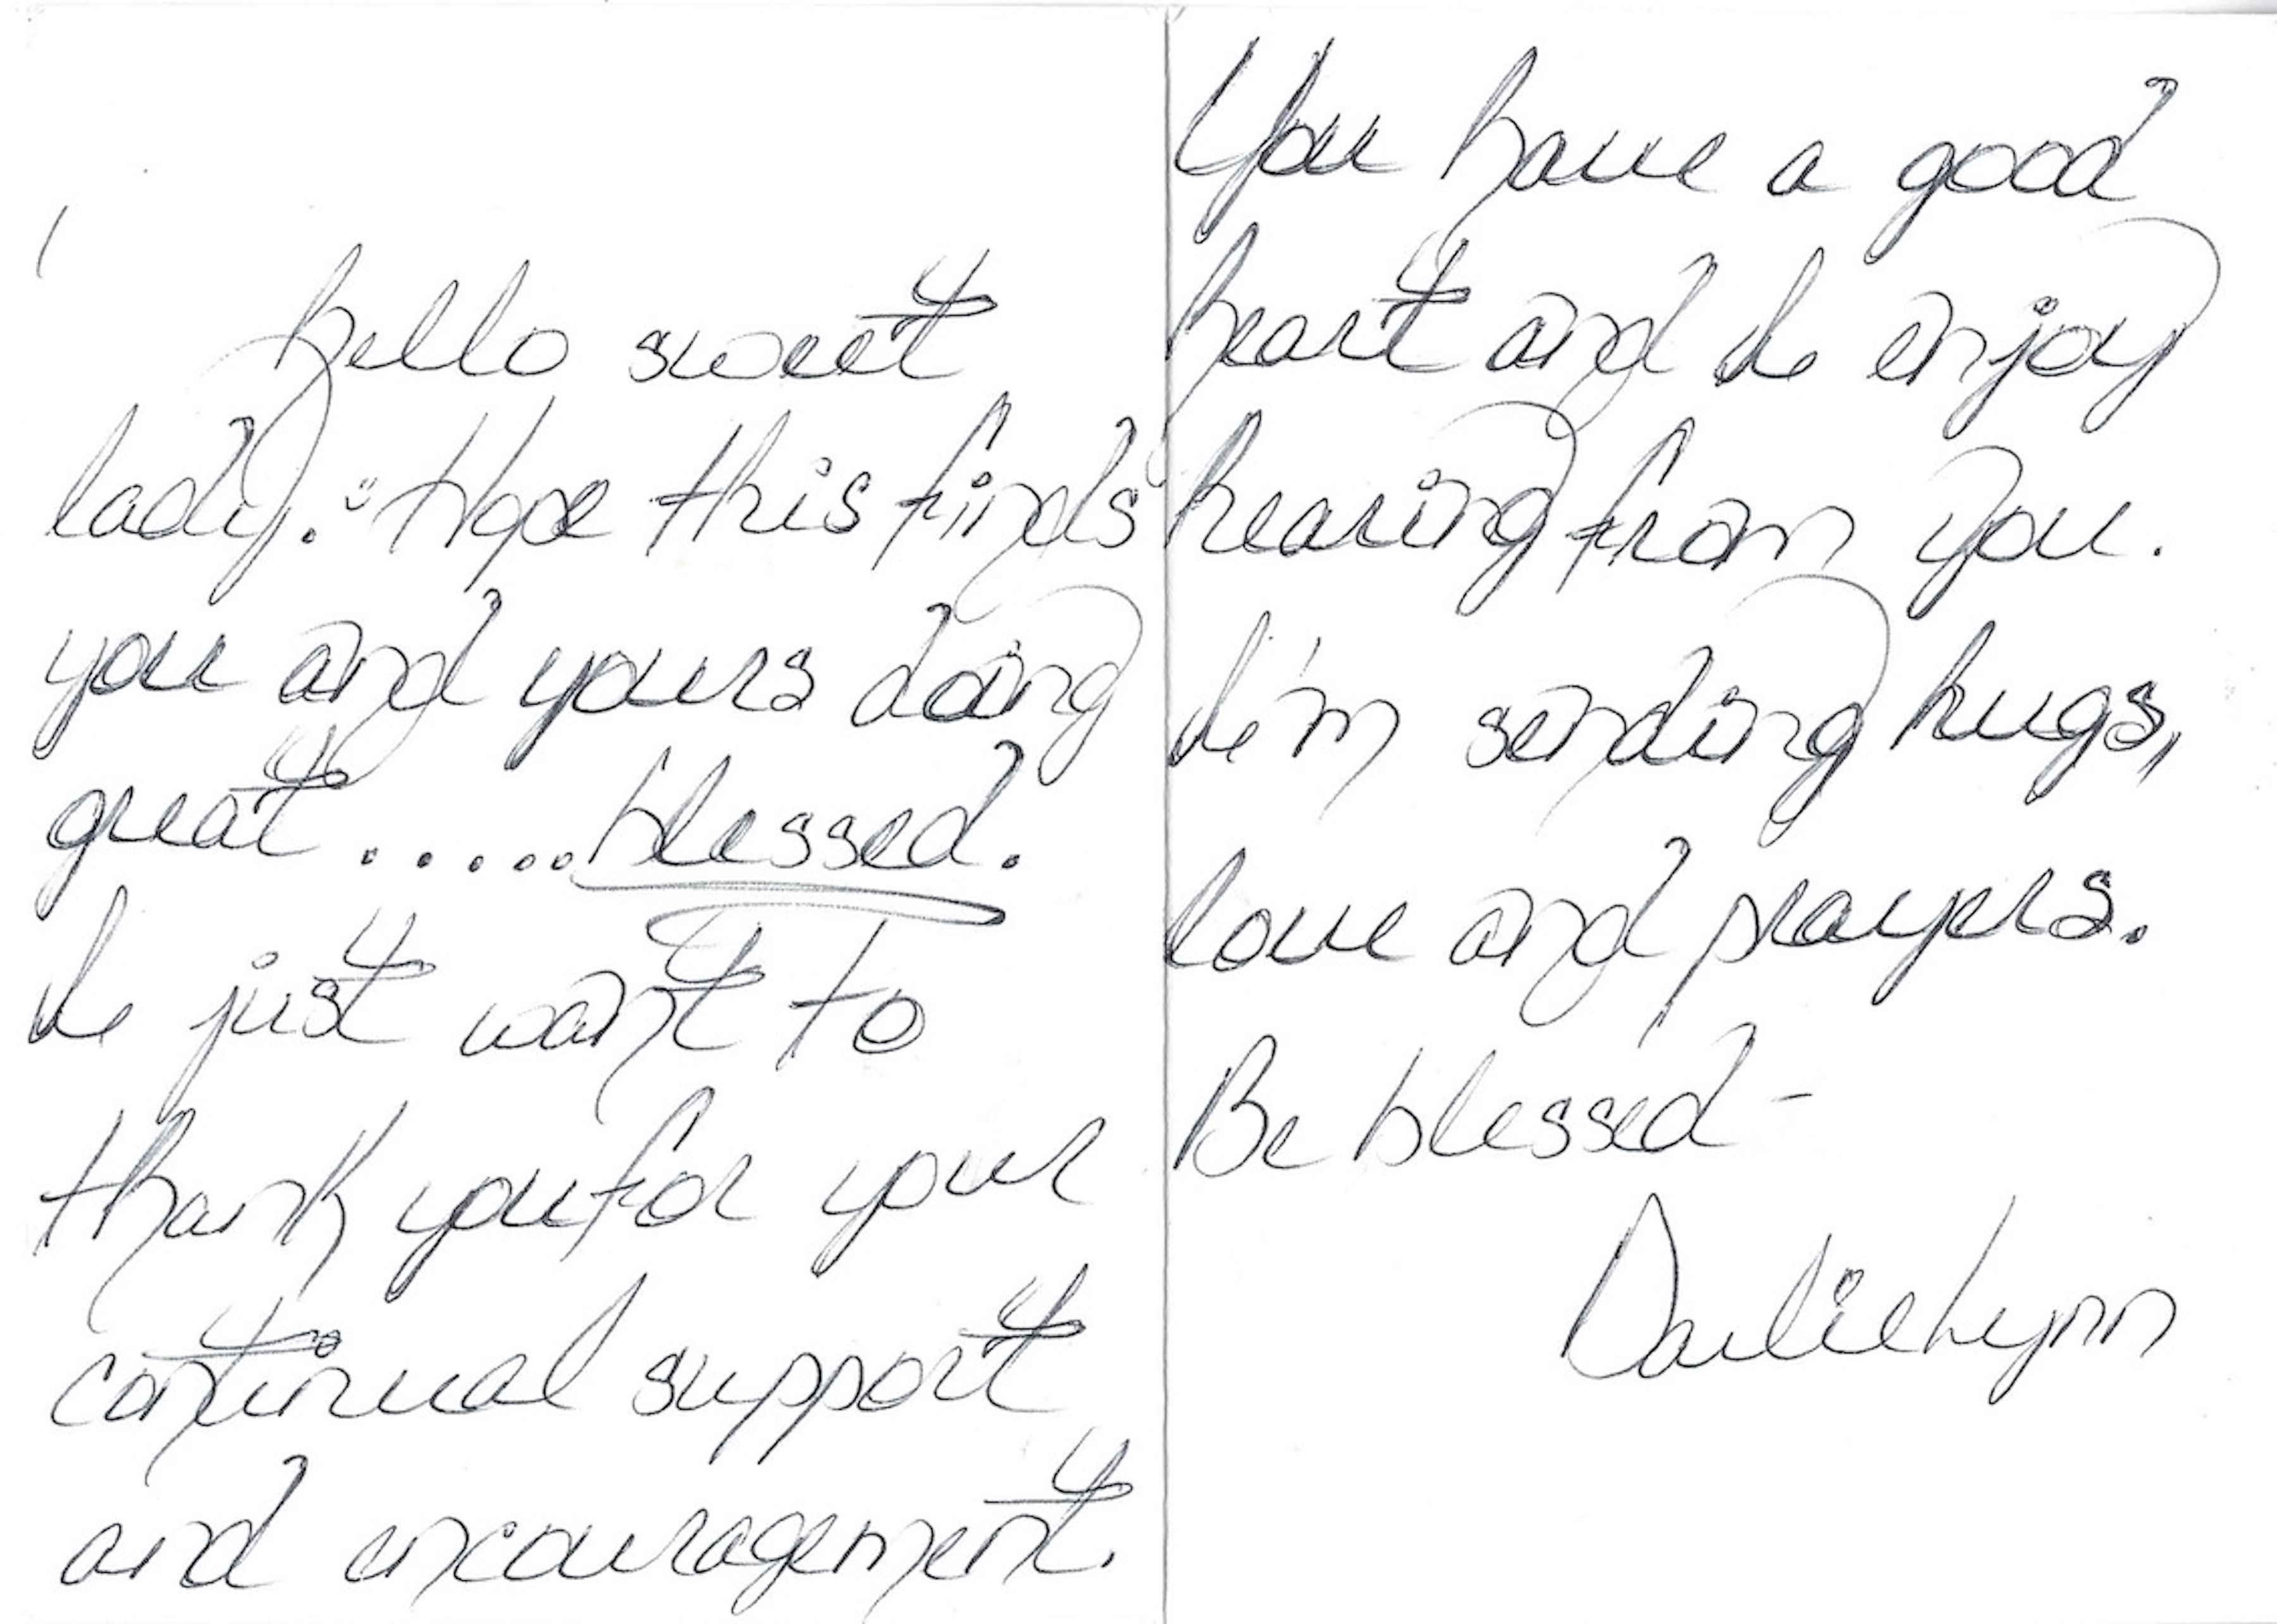 hello sweet
lady. Hope this finds
you and yours doing
great ...... blessed.
I just want to
thank you for your
continual support
and encouragement.
You have a good
heart and I enjoy
hearing from you.
I'm sending hugs,
love and prayers.
Be blessed -
DarlieLynn